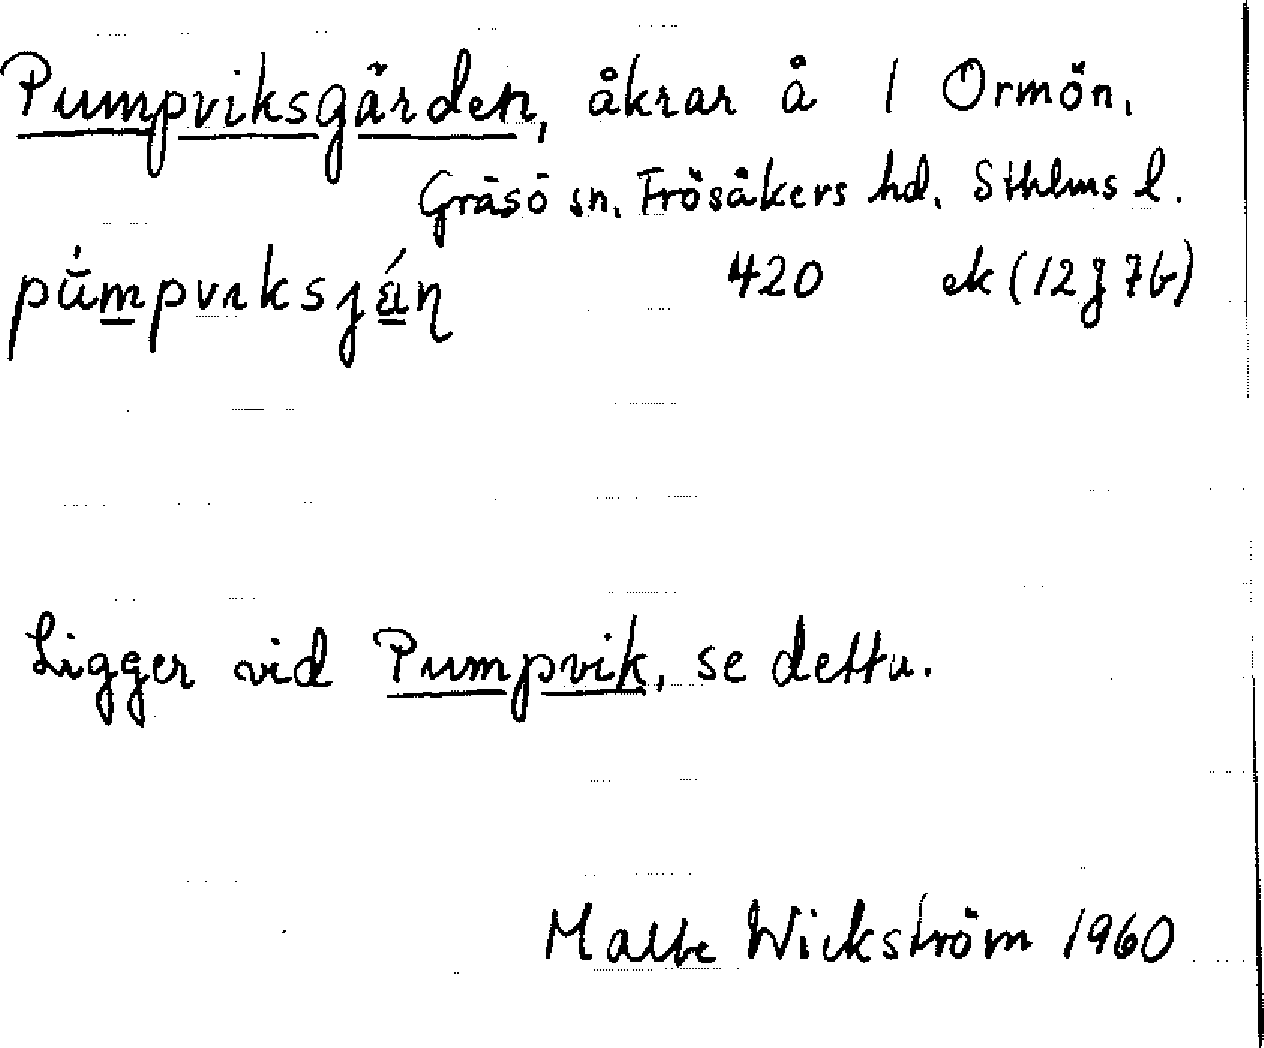 Pumpviksgärden, åkrar å 1 Ormön.
Gräsö sn. Frösåkers hd. Sthlms l.
420 ek (12J 7b)
Ligger vid Pumpvik, se detta.
Malte Wickström 1960